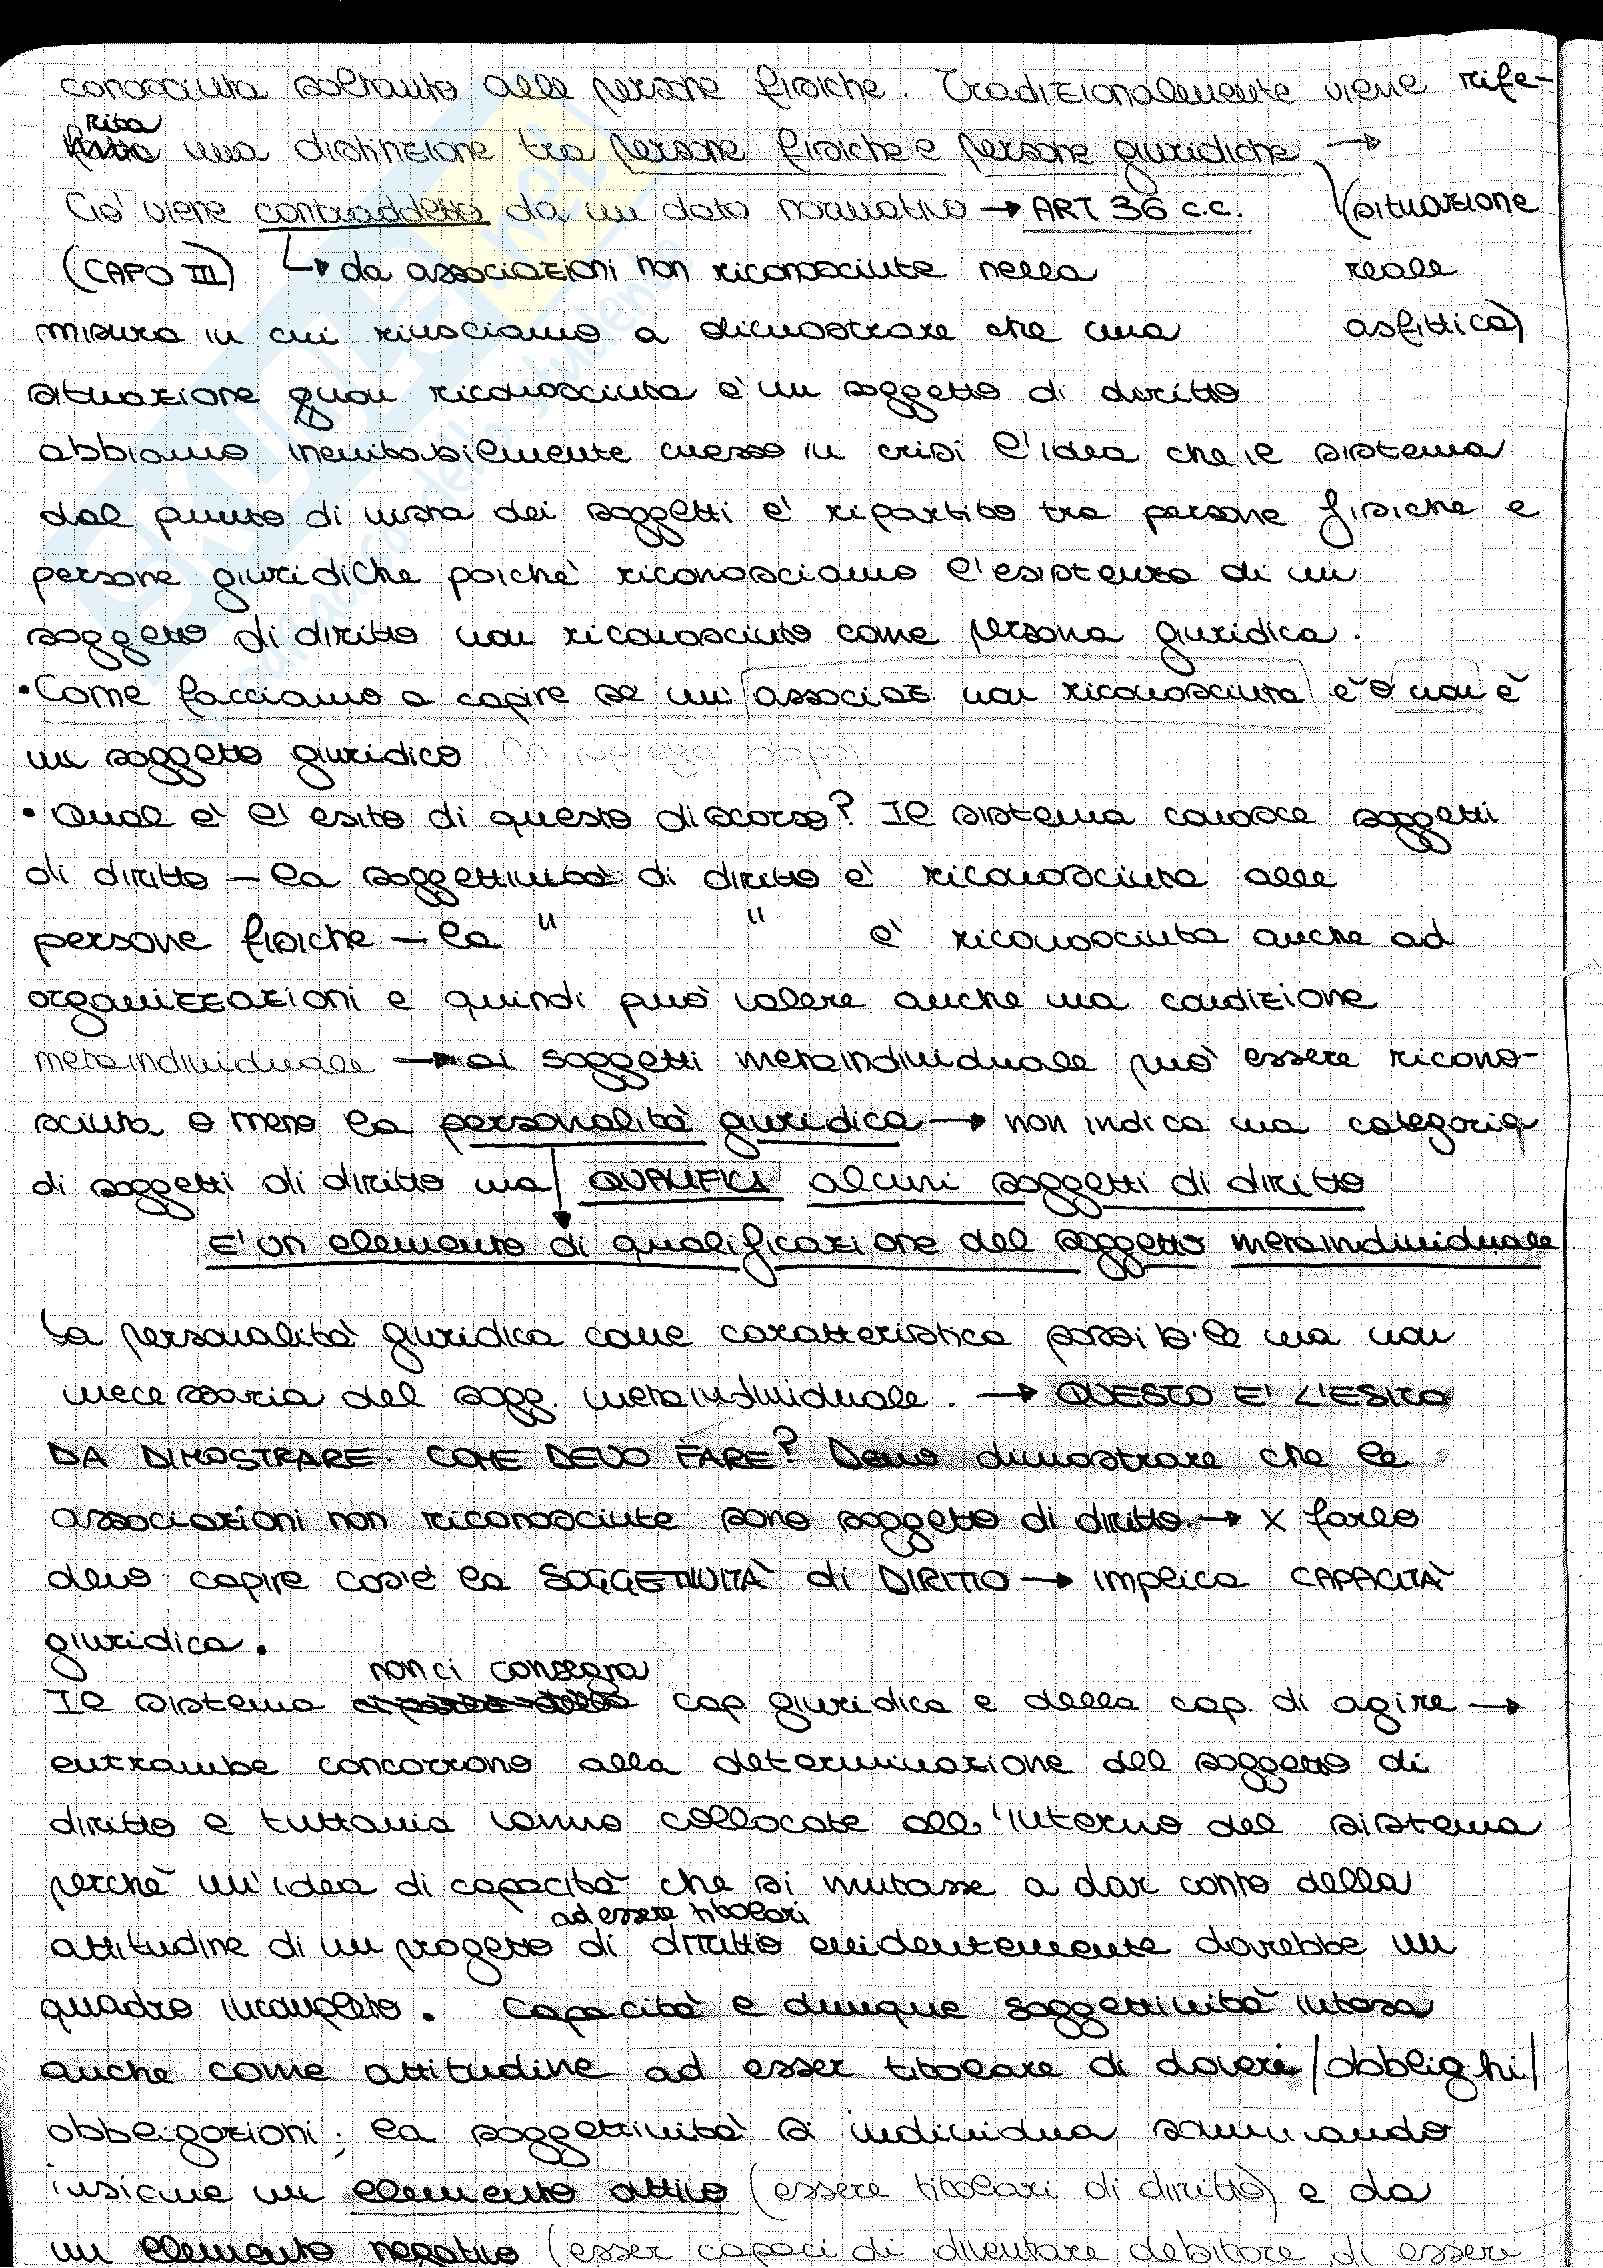 conosciuta soltanto alle persone fisiche. Tradizionalmente viene rife-
rita una distinzione tra persone fisiche e persone giuridiche →
Ciò viene contraddetto da un dato normativo → ART 36 c.c. (situazione
(CAPO III) ↳ da associazioni non riconosciute nella reale
misura in cui riusciamo a dimostrare che una asfittica)
situazione non riconosciuta e' un soggetto di diritto
abbiamo inevitabilmente messo in crisi l'idea che il sistema
dal punto di vista dei soggetti e' ripartito tra persone fisiche e
persone giuridiche poichè riconosciamo l'esistenza di un
soggetto di diritto non riconosciuto come persona giuridica.
• Come facciamo a capire se un' associaz. non riconosciuta è o non è
un soggetto giuridico
• Qual e' l'esito di questo discorso? Il sistema conosce soggetti
di diritto – la soggettività di diritto e' riconosciuta alle
persone fisiche – la " " e' riconosciuta anche ad
organizzazioni e quindi può valere anche una condizione
metaindividuale → ai soggetti metaindividuale può essere ricono-
sciuta o meno la personalità giuridica → non indica una categoria
di soggetti di diritto ma QUALIFICA alcuni soggetti di diritto
E' un elemento di qualificazione del soggetto metaindividuale
La personalità giuridica come caratteristica possibile ma non
necessaria del sogg. metaindividuale. → QUESTO E' L'ESITO
DA DIMOSTRARE. COME DEVO FARE? Devo dimostrare che le
associazioni non riconosciute sono soggetto di diritto. → x farlo
devo capire cos'è la SOGGETTIVITÀ di DIRITTO → implica CAPACITÀ
giuridica.
non ci consegna
Il sistema cap giuridica e della cap. di agire →
entrambe concorrono alla determinazione del soggetto di
diritto e tuttavia vanno collocate all'interno del sistema
perchè un'idea di capacità che si mutasse a dar conto della
ad essere titolari
attitudine di un progetto di diritto evidentemente darebbe un
quadro incompleto. Capacità e dunque soggettività intesa
anche come attitudine ad esser titolare di doveri/obblighi/
obbligazioni; la soggettività si individua sommando
insieme un elemento attivo (essere titolari di diritto) e da
un elemento negativo (esser capaci di diventare debitore di essere